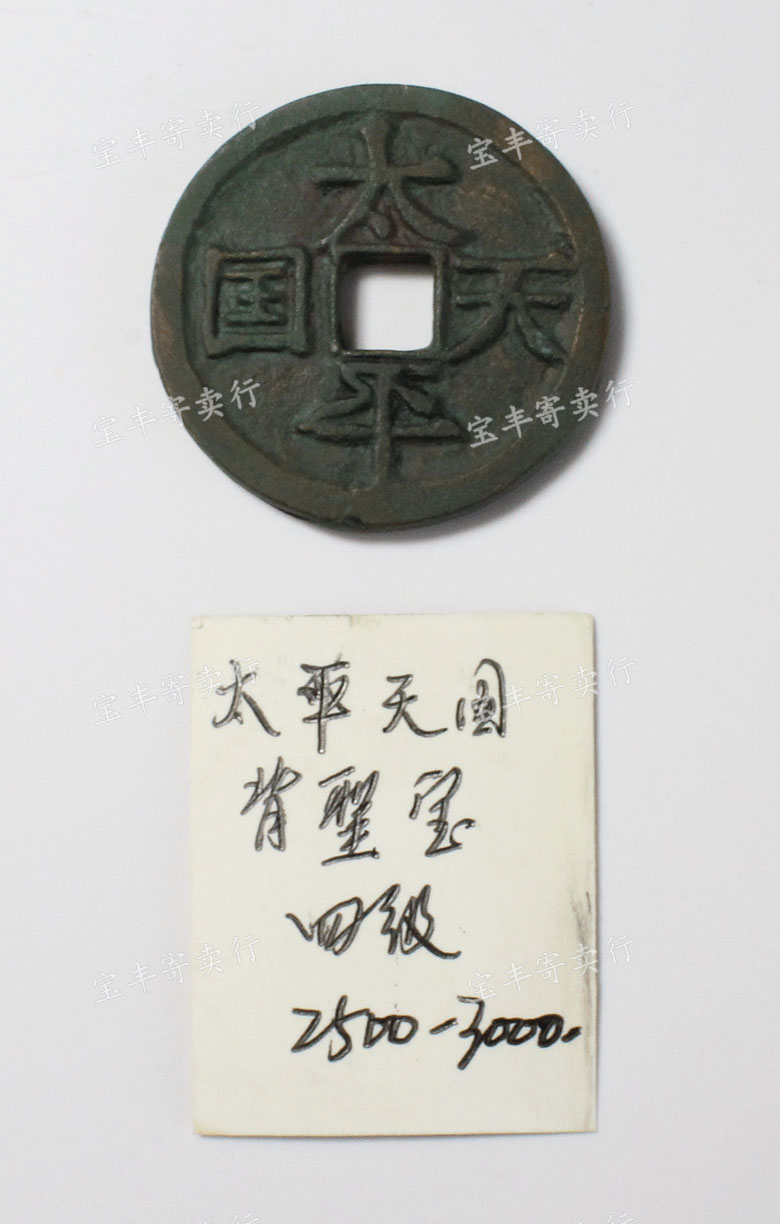 宝丰寄卖行 宝丰寄卖行
太
囯 天
平
宝丰寄卖行 宝丰寄卖行
太平天国
宝丰寄卖行 宝丰寄卖行
背聖宝
四级
宝丰寄卖行 宝丰寄卖行
2500-3000.